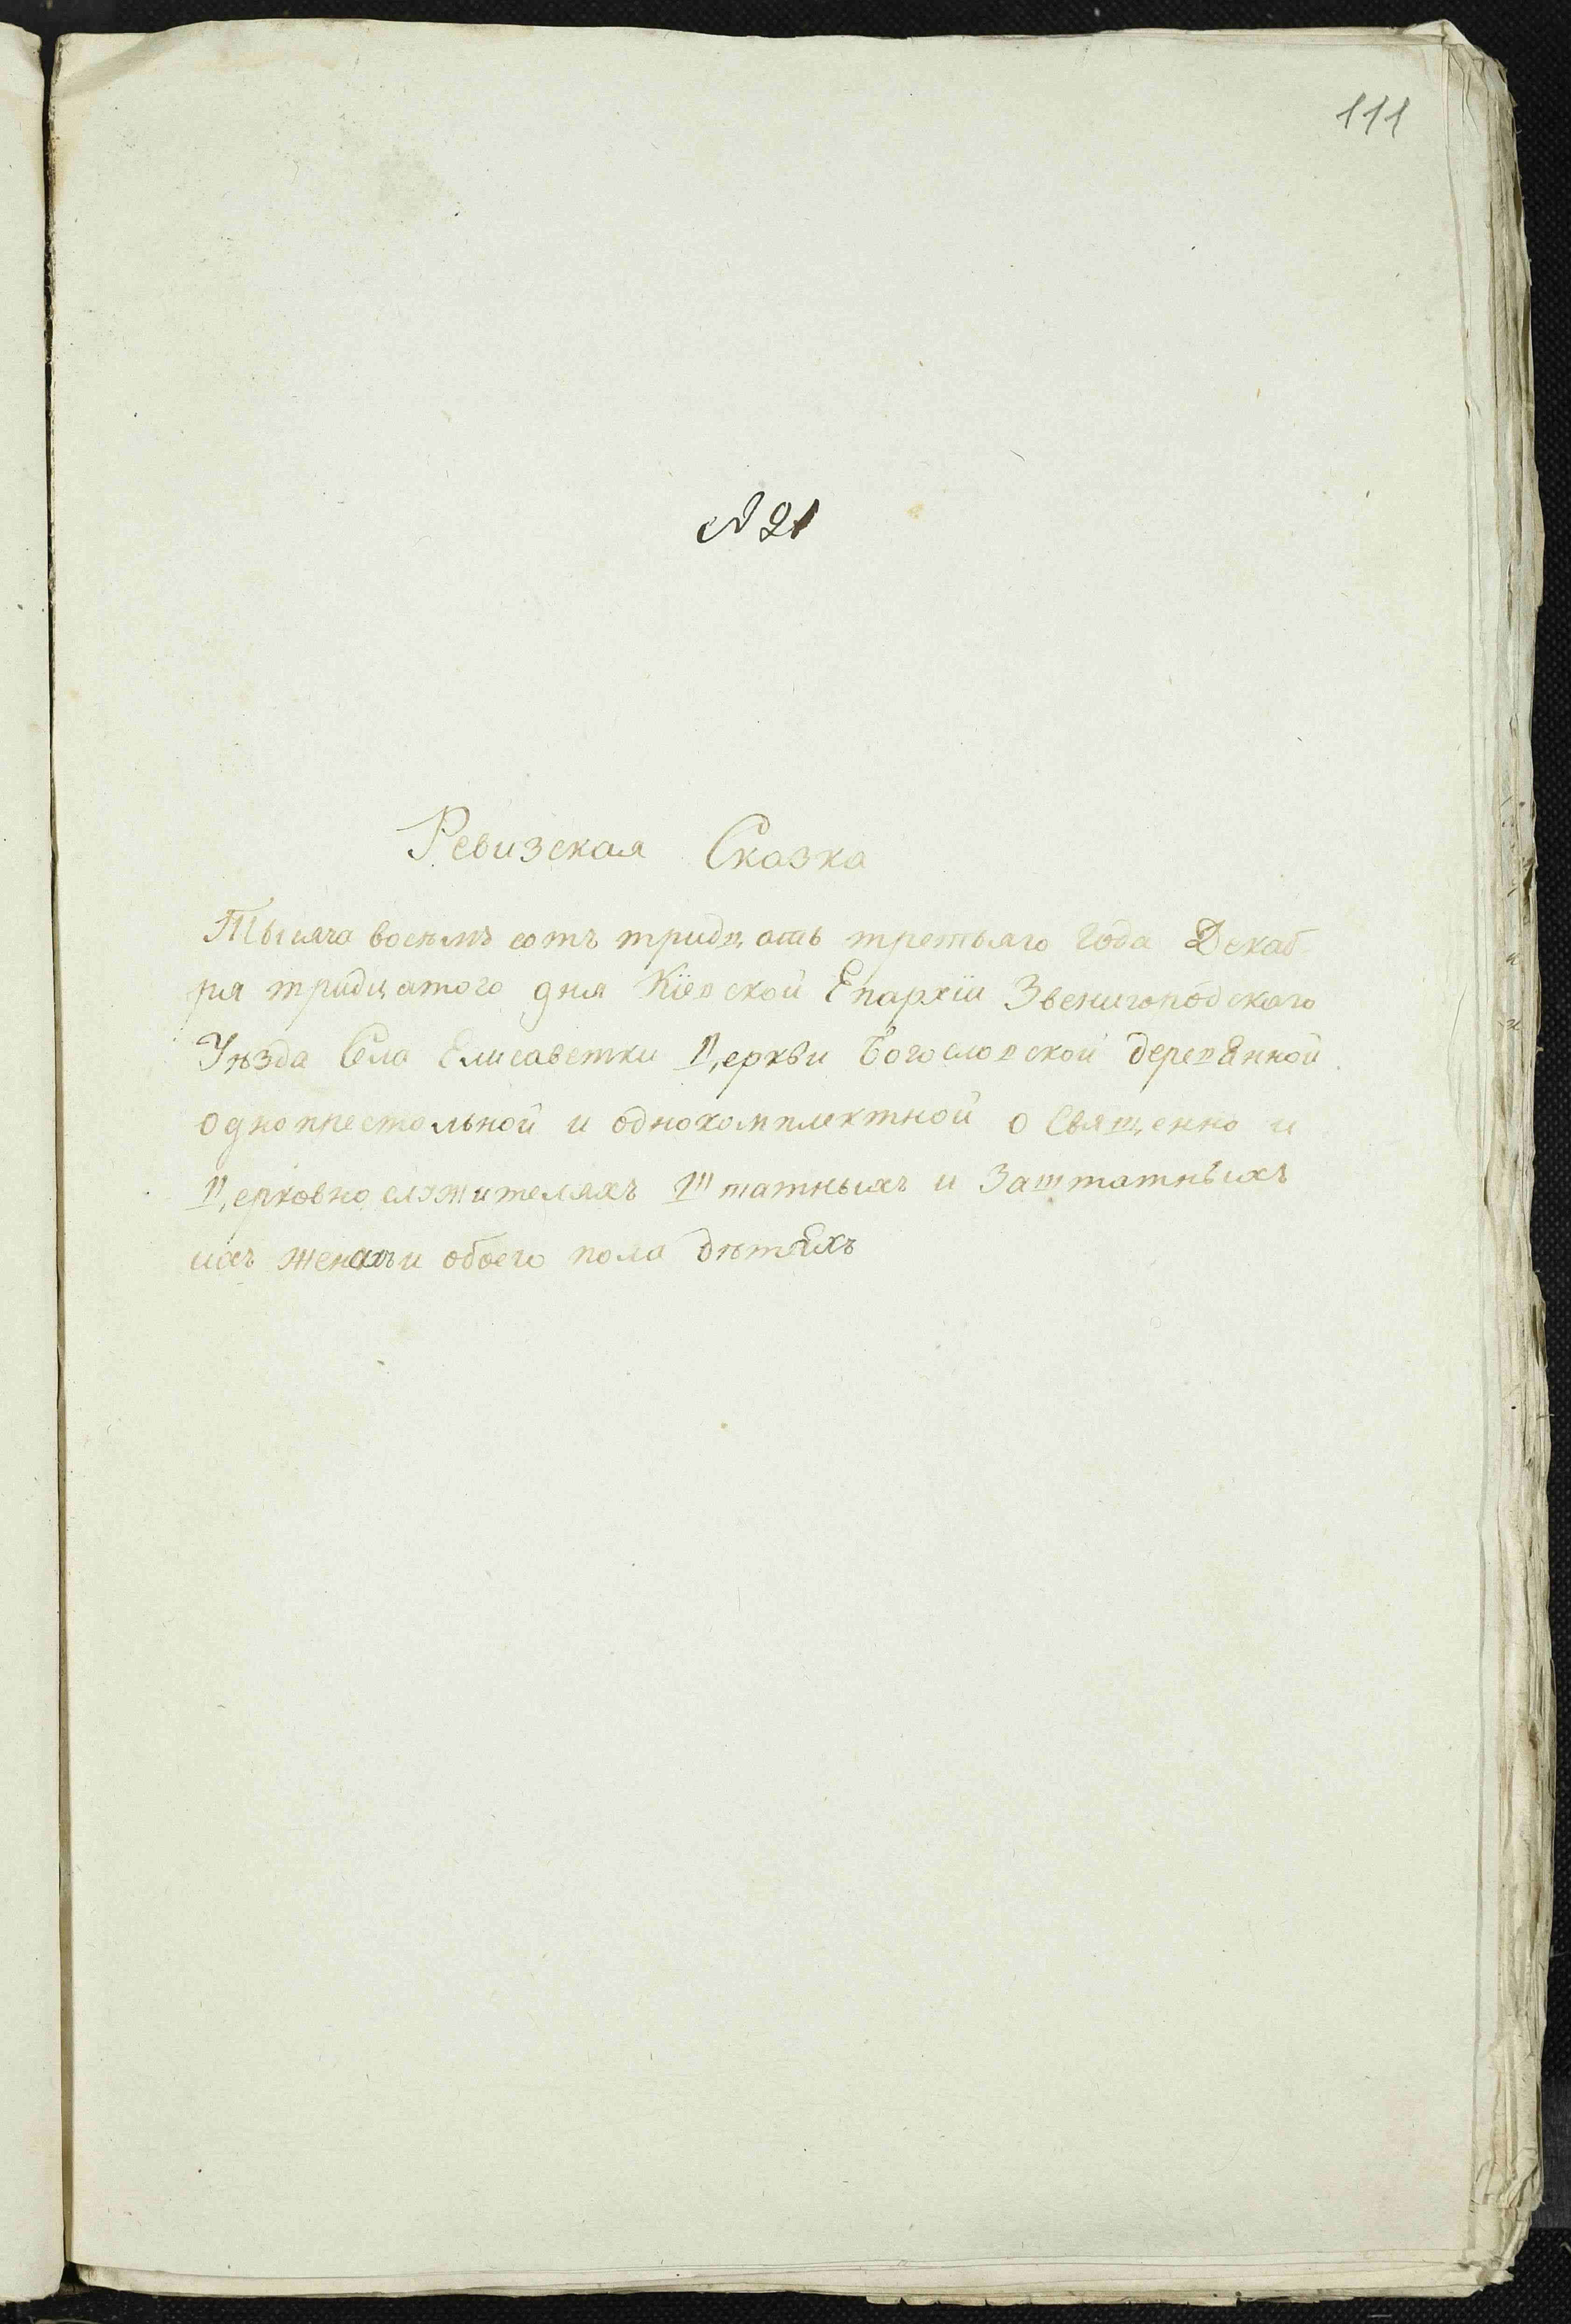 111
№ 21
Ревизская Сказка
Тысяча восемъ сотъ тридцать третьяго Года Декаб-
ря тридцатого дня Кіевской Епархіи Звенигородскаго
Уѣзда Села Елисаветки Церкви Богословской деревянной
однопрестольной и однокомплектной о Священно и
Церковно служителяхъ Штатныхъ и Заштатныхъ
ихъ женахъ и обоего пола дѣтяхъ